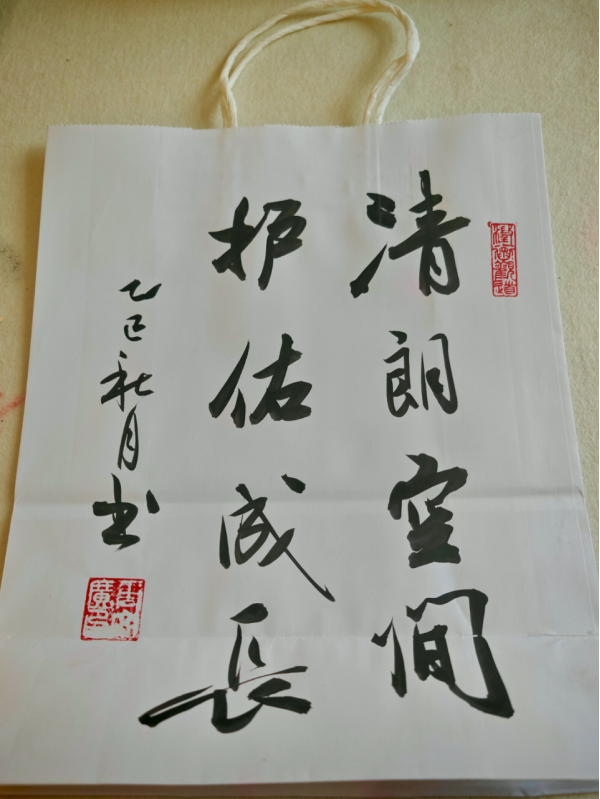 清朗空间
护佑成長
乙巳秋月
书